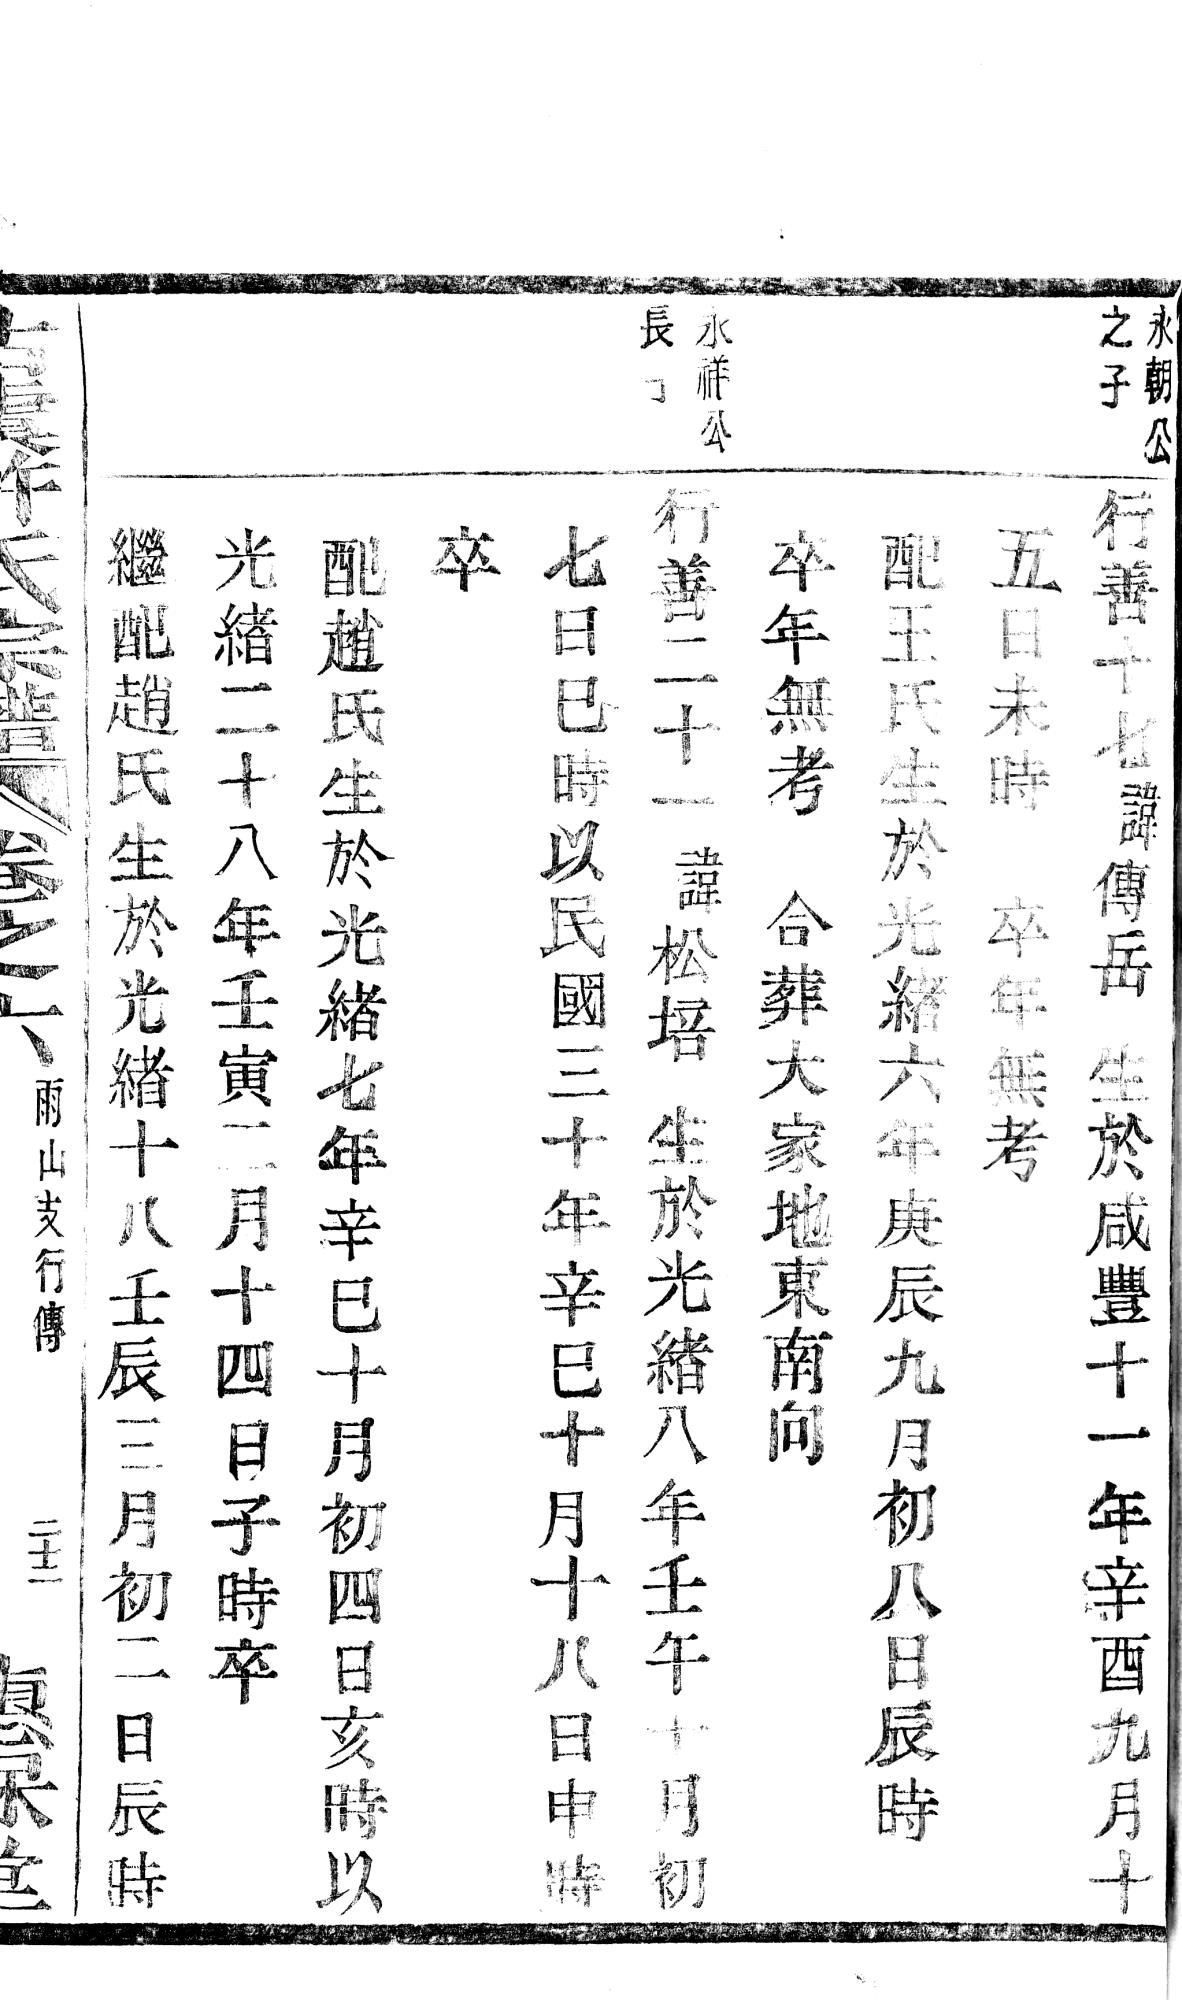 永朝公
之子
行善十七諱傳岳 生於咸豐十一年辛酉九月十
五日未時 卒年無考
配王氏生於光緒六年庚辰九月初八日辰時
卒年無考 合葬大家地東南向
永祥公
長
行善二十一 諱松培 生於光緒八年壬午十月初
七日巳時以民國三十年辛巳十月十八日申時
卒
配趙氏生於光緒七年辛巳十月初四日亥時以
光緒二十八年壬寅二月十四日子時卒
繼配趙氏生於光緒十八壬辰三月初二日辰時
氏宗譜 卷之六 雨山支行傳